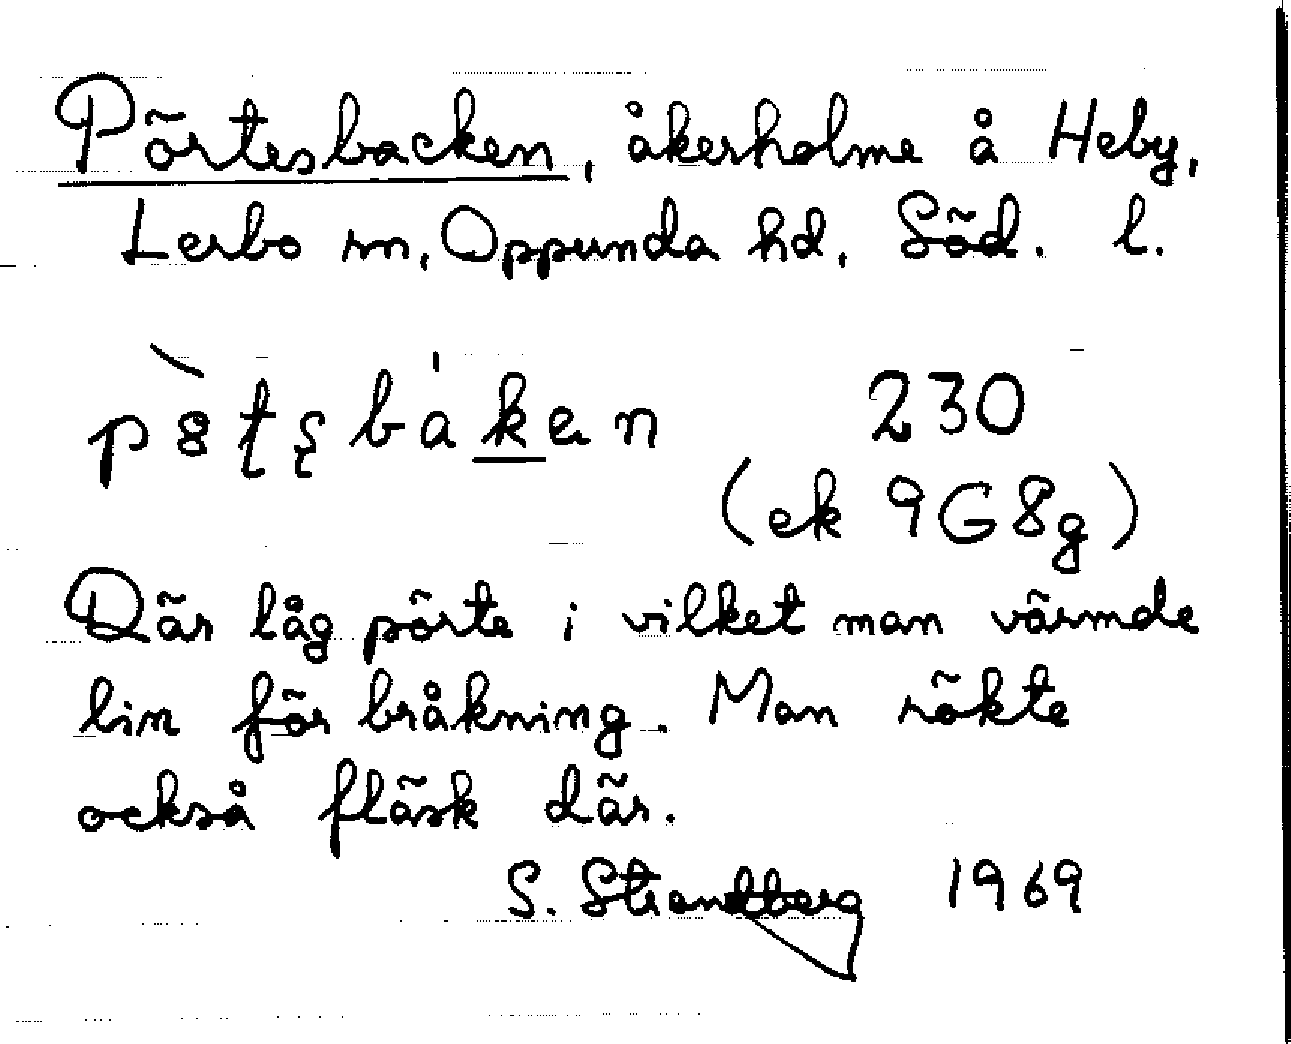 Pörtesbacken, åkerholme å Heby,
Lerbo sn, Oppunda hd, Söd. l.
230
(ek 9G8g)
Där låg pörte i vilket man värmde
lin för bråkning. Man rökte
också fläsk där.
S. Strandberg 1969